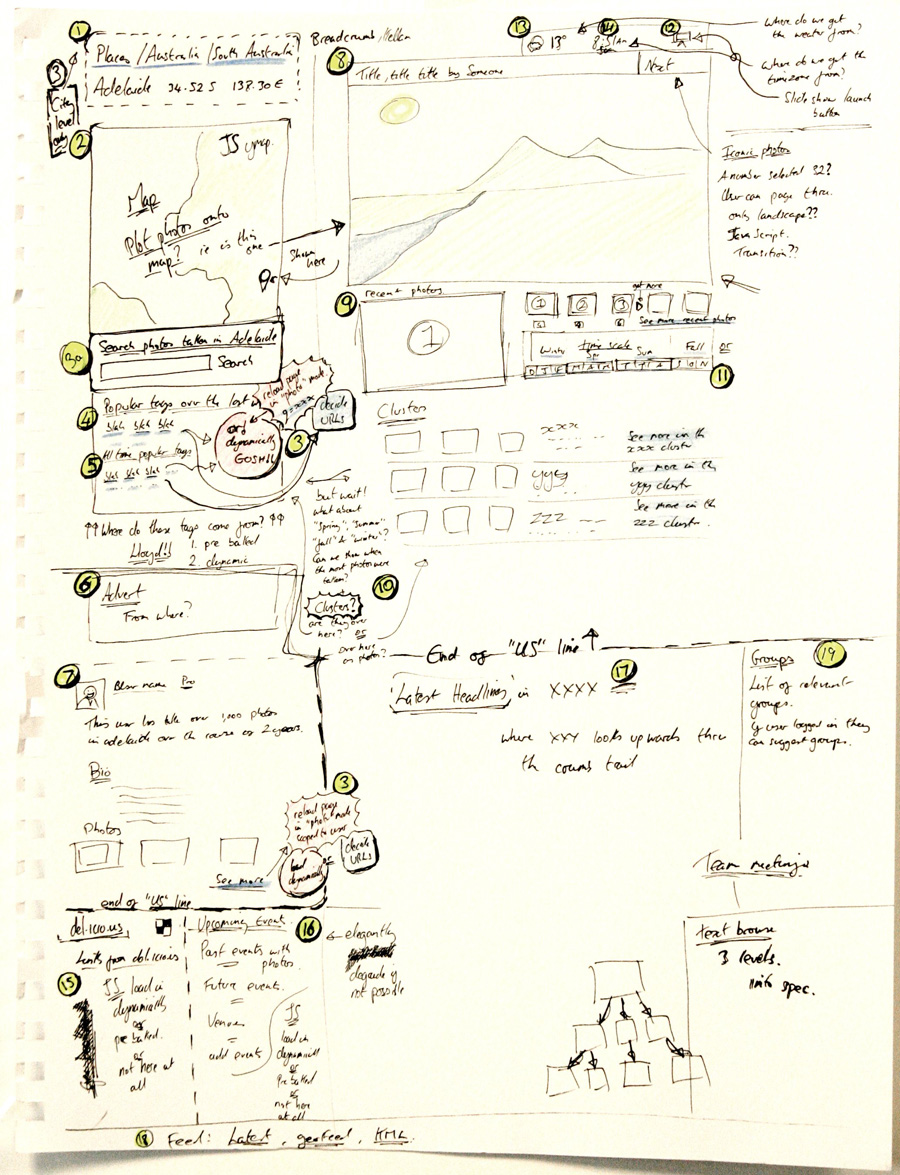 1
Places / Australia / South Australia
Adelaide 34.52 S 138.30 E
Breadcrumbs,
3
City
level
only
2
JS ymap.
Map
Plot photos onto
map? ie is this
one
shown
here
3a
Search photos taken in Adelaide
Search
4
Popular tags over the last
blah blah blah
5
All time popular tags
blah blah blah
reload page
in "photo" mode.
9=xxx
or
dynamically
GOSHI!
3
decide
URLs
?? Where do these tags come from? ??
Lloyd!!
1. pre baked
2. dynamic
but wait!
what about
"Spring", "Summer"
"fall" & "winter"?
Can we show when
the most photos were
taken?
10
Clusters?
are they over
here? or
over here
as photos?
6
Advert
From where?
13
13°
14
12
8
Title, title title by Someone
Next
Where do we get
the weather from?
Where do we get the
timezone from?
Slide show launch
button
Iconic photos
A number selected 32?
User can page thru.
only landscape??
JavaScript.
Transition??
9
recent photos.
1
1 2 3
get more
See more recent photos
time scale
Winter Spr Sum Fall
D J F M A M J J A S O N
or
11
Clusters
xxxx
See more in the
xxx cluster
yyyy
See more in the
yyy cluster
zzz
See more in the
zzz cluster.
End of "US" line
7
User name Pro
This user has take over 1,000 photos
in adelaide over the course of 2 years.
Bio
Photos
See more
3
reload page
in "photo" mode
scoped to user
or
load
dynamically
decide
URLs
end of "US" line
17
'Latest Headlines' in XXXX
where XXX looks upwards thru
the crumb trail
19
Groups
List of relevant
groups.
If user logged in they
can suggest groups.
Team meetings
Text browse
3 levels.
into spec.
del.icio.us
Links from del.icio.us
15
JS load in
dynamically
or
pre baked.
or
not here at
all
Upcoming Events.
16
Past events with
photos.
Future events.
Venues
add events
JS
load in
dynamically
or
Pre baked
or
not here
at all
elegantly
degrade if
not possible
18 Feed: Latest, geofeed, KML.